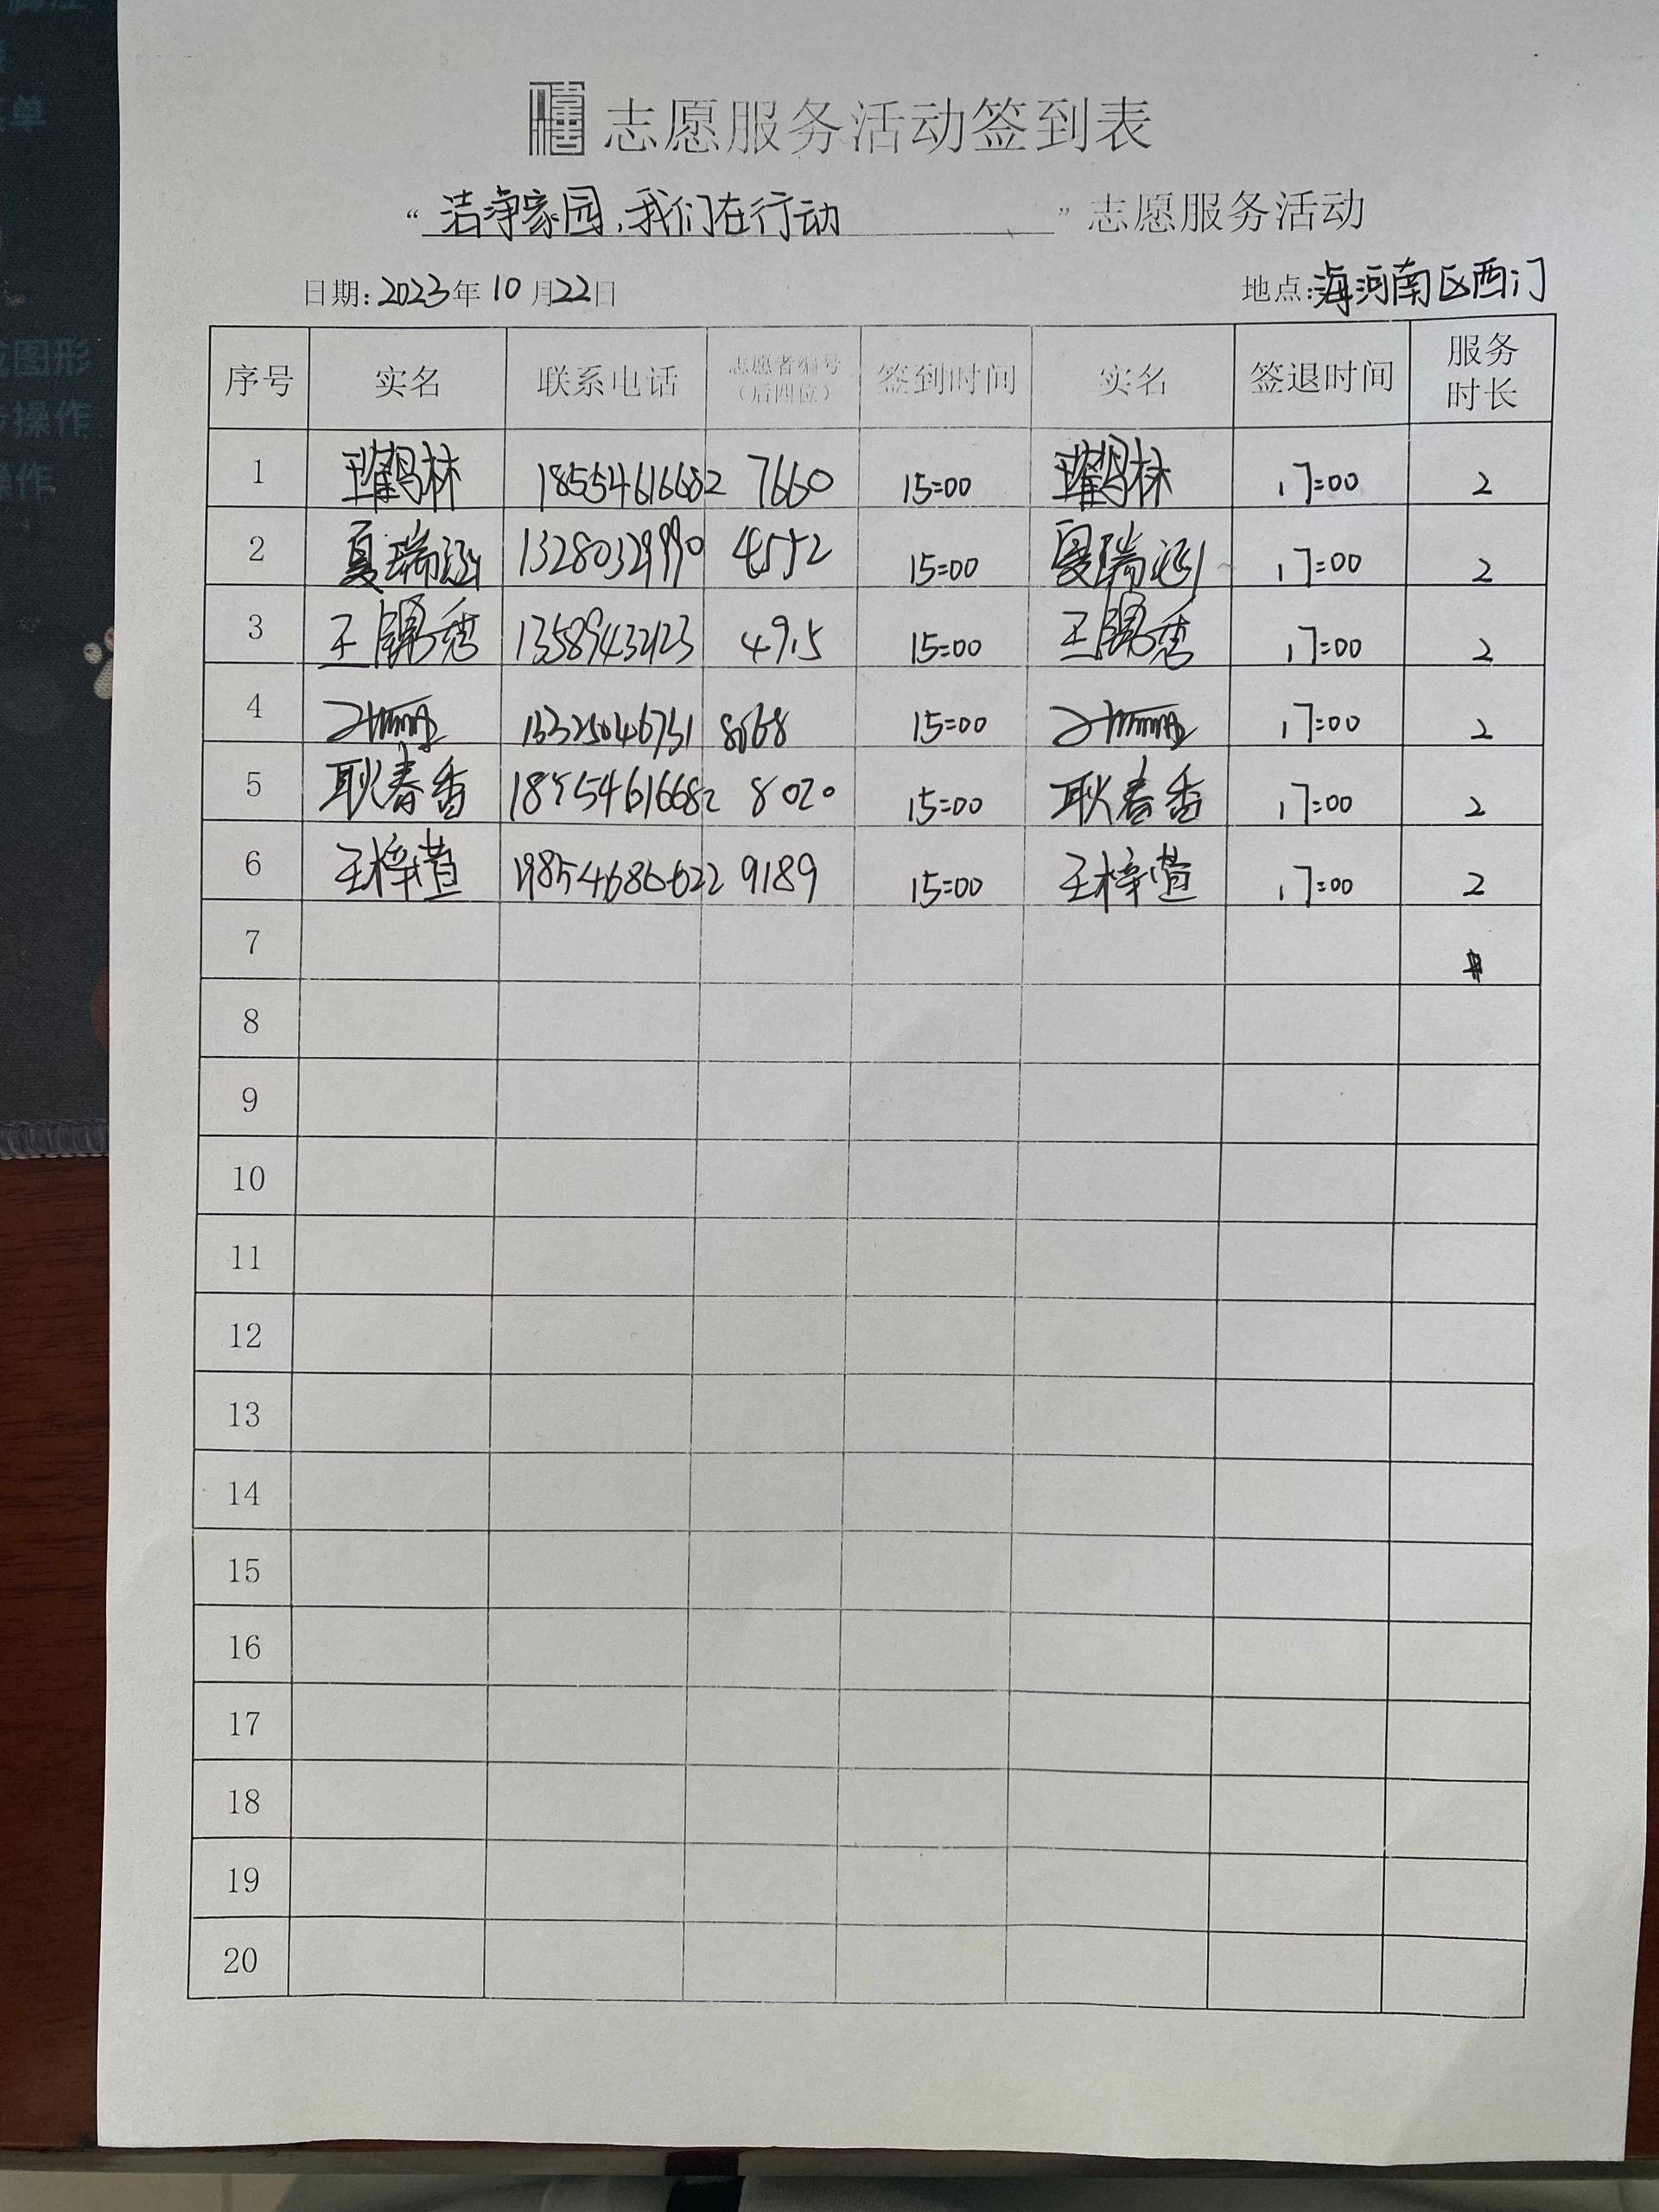 志愿服务活动签到表
“洁净家园,我们在行动”志愿服务活动
日期:2023年10月22日 地点:海河南区西门
序号 实名 联系电话 志愿者编号(后四位) 签到时间 实名 签退时间 服务时长
1 18554616682 7660 15:00 17:00 2
2 夏瑞涵 13280329990 4552 15:00 夏瑞涵 17:00 2
3 王锦秀 13589432123 4915 15:00 王锦秀 17:00 2
4 15:00 17:00 2
5 耿春香 18554616682 8020 15:00 耿春香 17:00 2
6 王梓萱 9189 15:00 王梓萱 17:00 2
7
8
9
10
11
12
13
14
15
16
17
18
19
20
单
图形
操作
操作